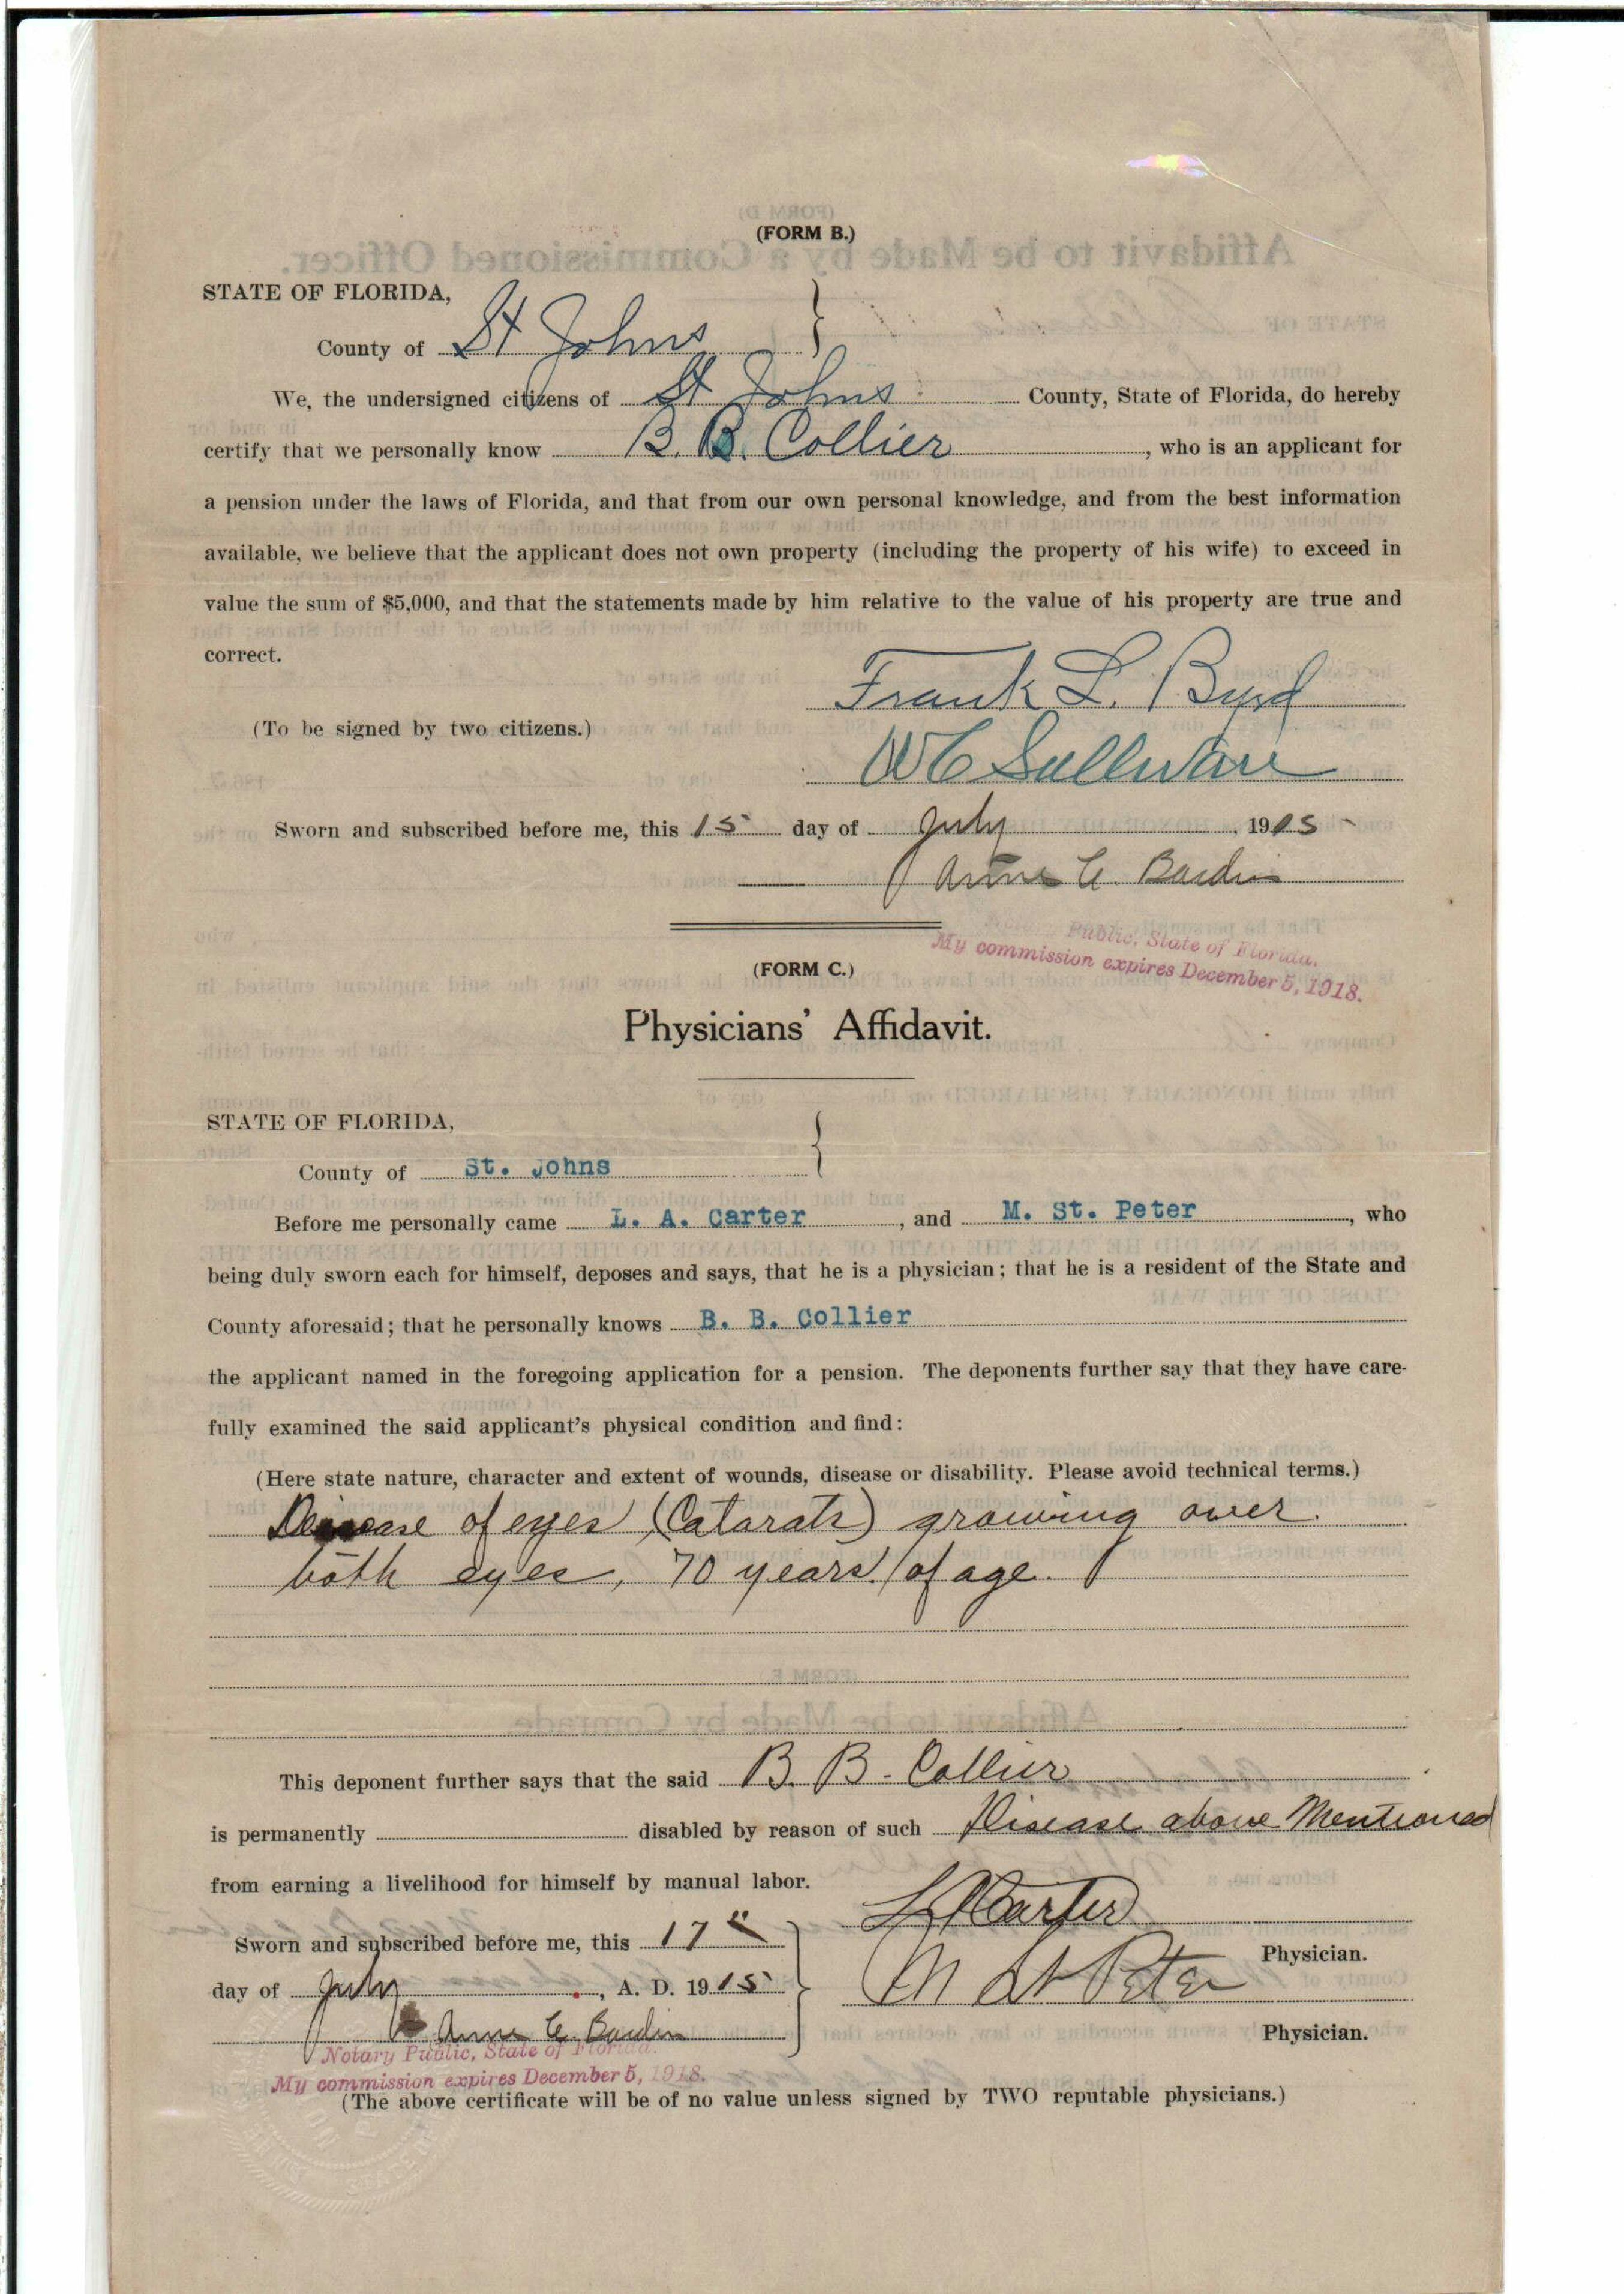 (FORM B.)
STATE OF FLORIDA,
County of St Johns
We, the undersigned citizens of St Johns County, State of Florida, do hereby
certify that we personally know B. B. Collier, who is an applicant for
a pension under the laws of Florida, and that from our own personal knowledge, and from the best information
available, we believe that the applicant does not own property (including the property of his wife) to exceed in
value the sum of $5,000, and that the statements made by him relative to the value of his property are true and
correct.
Frank L. Byrd
(To be signed by two citizens.)
W C Sullivan
Sworn and subscribed before me, this 15 day of July 1915
Anne C. Bardin
Public, State of Florida.
My commission expires December 5, 1918.
(FORM C.)
Physicians' Affidavit.
STATE OF FLORIDA,
County of St. Johns
Before me personally came L. A. Carter, and M. St. Peter, who
being duly sworn each for himself, deposes and says, that he is a physician; that he is a resident of the State and
County aforesaid; that he personally knows B. B. Collier
the applicant named in the foregoing application for a pension. The deponents further say that they have care-
fully examined the said applicant's physical condition and find:
(Here state nature, character and extent of wounds, disease or disability. Please avoid technical terms.)
Disease of eyes (Catarats) growing over
both eyes, 70 years of age.
This deponent further says that the said B. B. Collier
is permanently disabled by reason of such Disease above Mentioned
from earning a livelihood for himself by manual labor.
L A Carter
Sworn and subscribed before me, this 17
Physician.
day of July, A. D. 1915
M St Peter
Anne C. Bardin
Physician.
Notary Public, State of Florida.
My commission expires December 5, 1918.
(The above certificate will be of no value unless signed by TWO reputable physicians.)